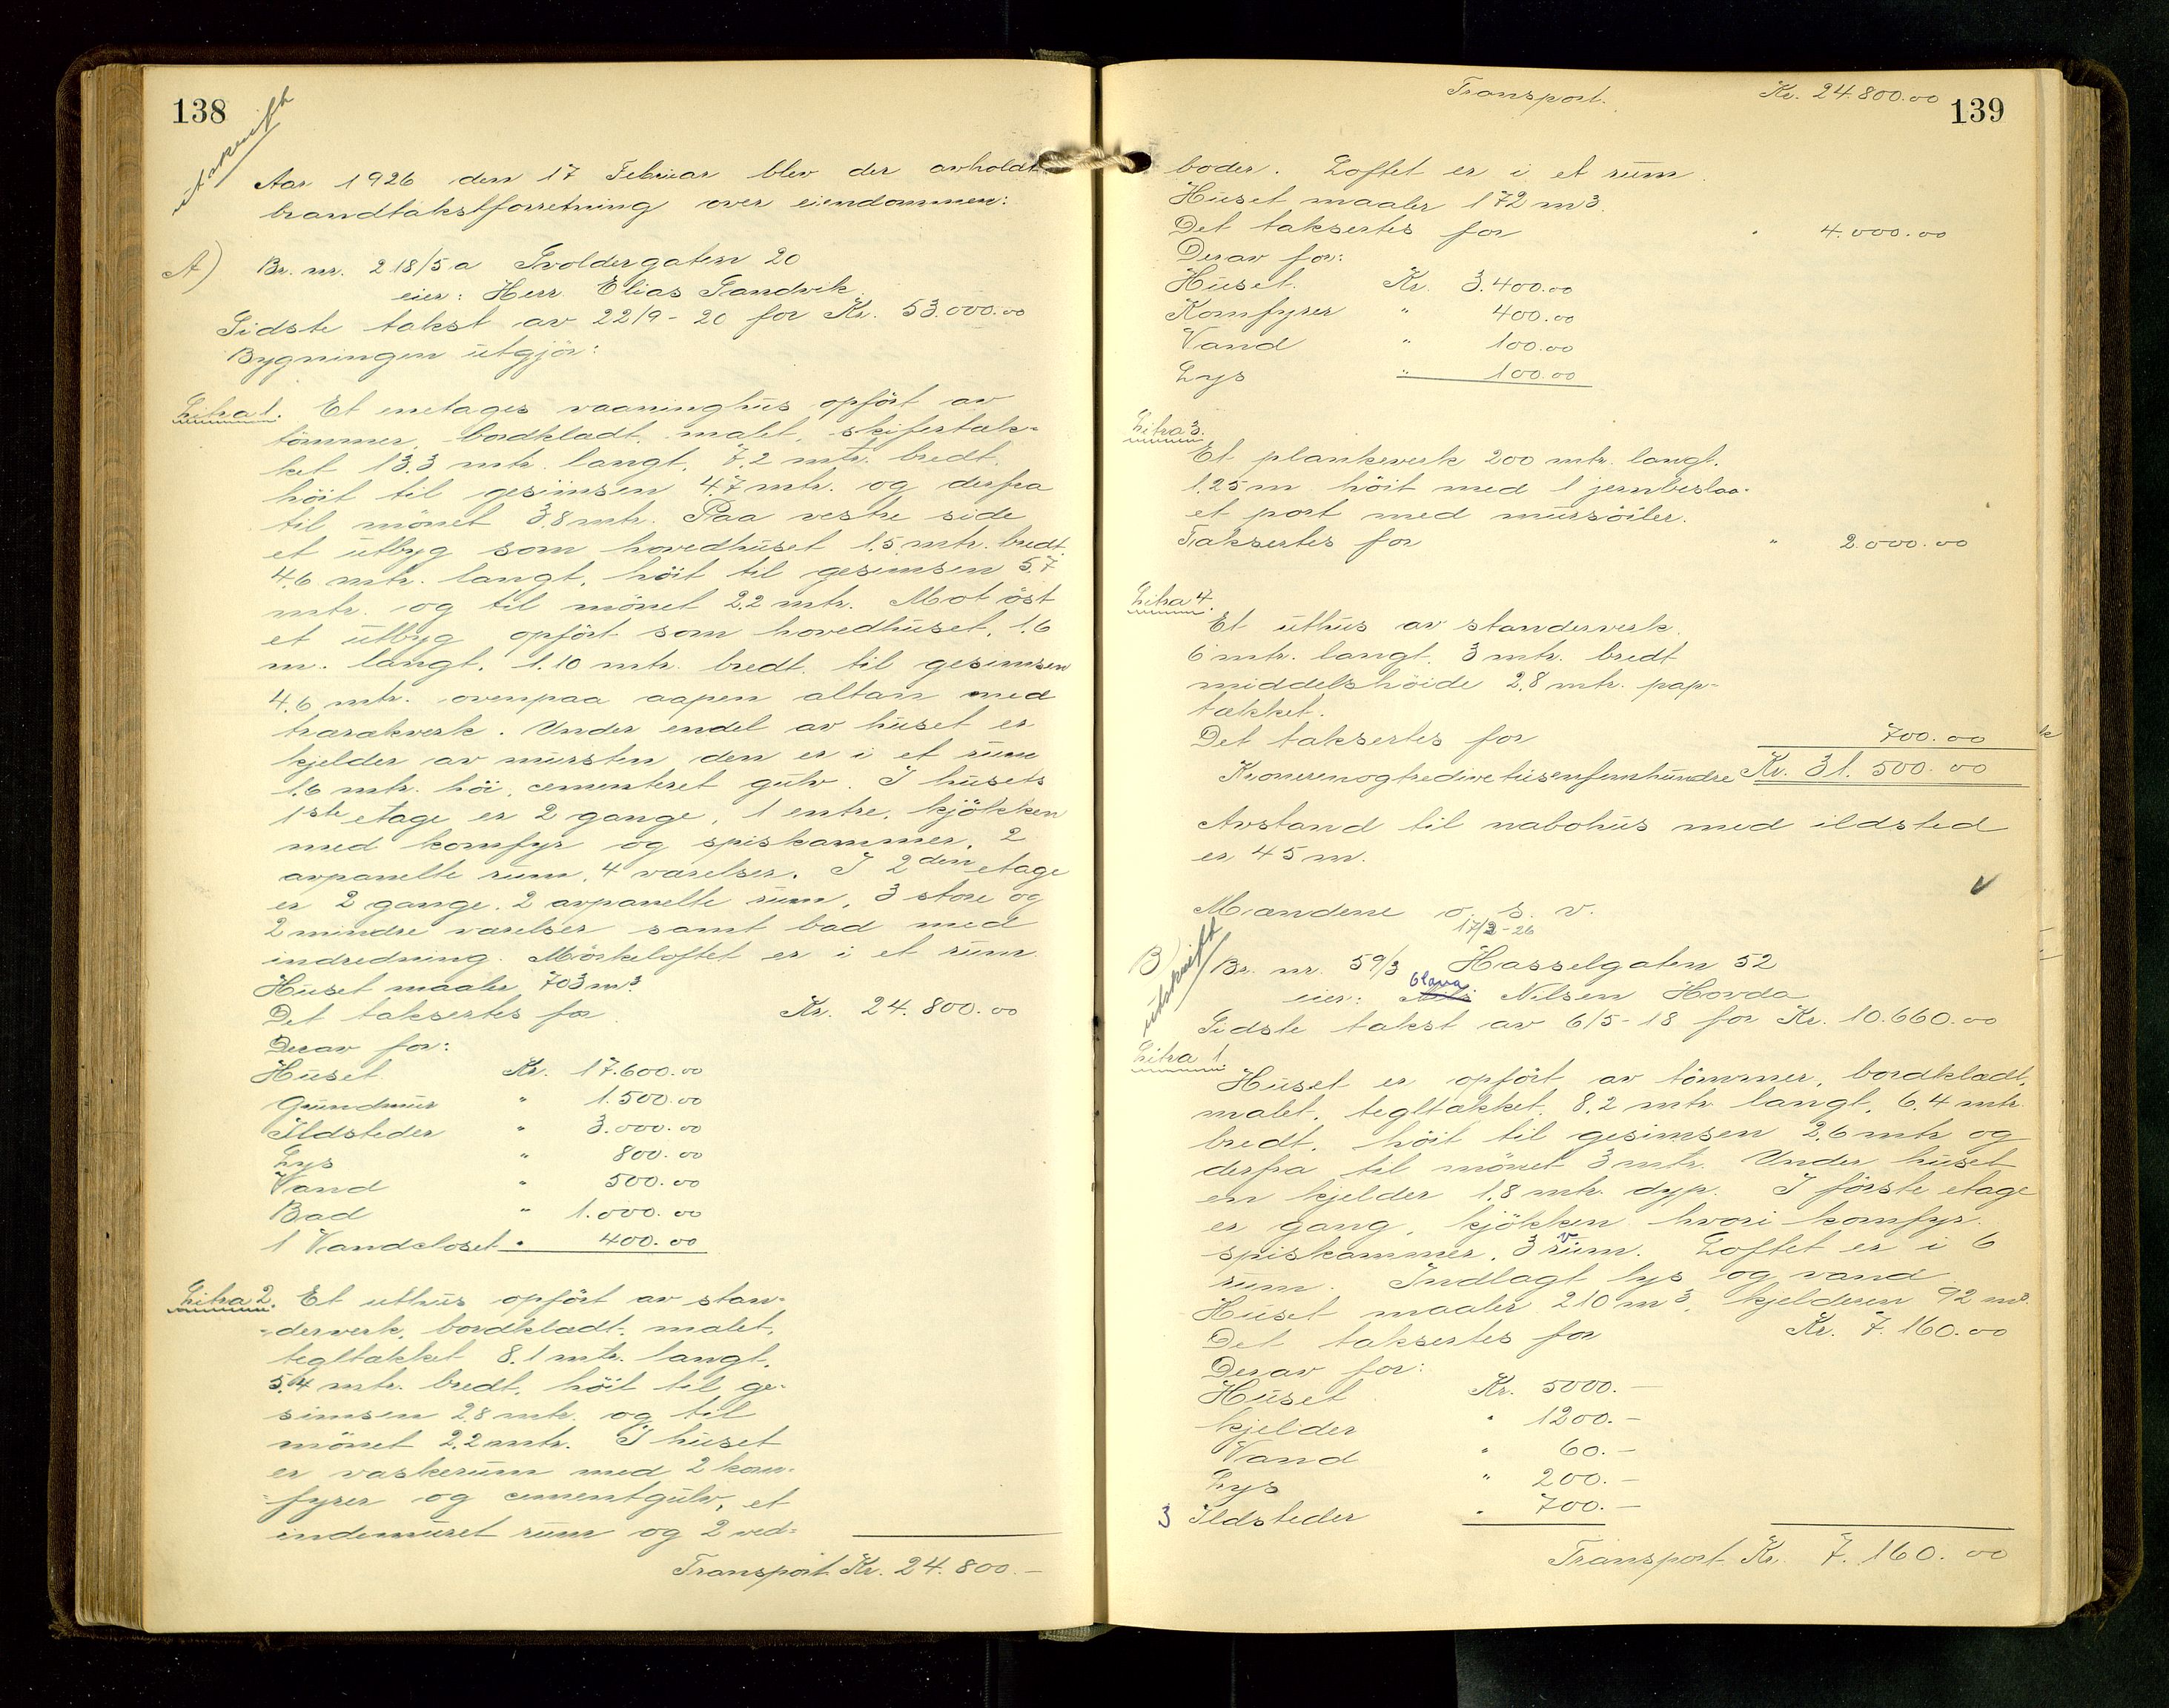 138
utskrift
Aar 1926 den 17 Februar blev der avholdt
brandtakstforretning over eiendommen:
A) Br. nr. 218/5a Svoldergaten 20
eier: Herr Elias Sandvik.
Sidste takst av 22/9-20 for Kr. 53.000.00
Bygningen utgjör:
Litra 1. Et enetages vaaninghus opfört av
tömmer, bordkladt, malet, skifertak-
ket 13.3 mtr. langt, 7,2 mtr. bredt,
höit til gesimsen 4,7 mtr. og derfra
til mönet 3,8 mtr. Paa vestre side
et utbyg som hovedhuset 1,5 mtr. bredt
4,6 mtr. langt, höit til gesimsen 5,7
mtr. og til mönet 2,2 mtr. Mot öst
et utbyg opfört som hovedhuset, 1,6
m. langt, 1.10 mtr. bredt til gesimsen
4,6 mtr. ovenpaa aapen altan med
trærækverk. Under endel av huset er
kjelder av mursten den er i et rum
1,6 mtr. höi, cementeret gulv. I husets
1ste etage er 2 gange, 1 entre, kjökken
med komfyr og spiskammer, 2
avpanelte rum, 4 værelser. I 2den etage
er 2 gange, 2 avpanelte rum, 3 store og
2 mindre værelser samt bad med
indredning. Mörkeloftet er i et rum.
Huset maaler 703 m3.
Det taksertes for Kr. 24.800.00
Derav for:
Huset Kr. 17.600.00
Grundmur " 1.500.00
Ildsteder " 3.000.00
Lys " 800.00
Vand " 500.00
Bad " 1.000.00
1 Vandcloset " 400.00
Litra 2. Et uthus opfört av stan-
derverk, bordkladt, malet,
tegltakket 8,1 mtr. langt,
5,4 mtr. bredt, höit til ge-
simsen 2,8 mtr. og til
mönet 2,2 mtr. I huset
er vaskerum med 2 kom-
fyrer og cementgulv, et
indemuret rum og 2 ved-
Transport Kr. 24.800.-
Transport. Kr. 24.800.00
139
boder. Loftet er i et rum.
Huset maaler 172 m3.
Det taksertes for " 4.000.00
Derav for:
Huset. Kr. 3.400.00
Komfyrer " 400.00
Vand " 100.00
Lys " 100.00
Litra 3.
Et plankeverk 200 mtr. langt.
1,25 m höit med 1 jernbeslaa-
et port med mursöiler.
Taksertes for " 2.000.00
Litra 4.
Et uthus av standerverk.
6 mtr. langt. 3 mtr. bredt
middelshöide 2,8 mtr. pap-
takket.
Det taksertes for 700.00
Kronerenogtredivetusenfemhundre Kr. 31.500.00
Avstand til nabohus med ildsted
er 45 m.
Mændene o. s. v.
17/2-26
utskrift
B Br. nr. 59/3 Hasselgaten 52
Olava
eier: Nils Nilsen Hovda
Sidste takst av 6/5-18 for Kr. 10.660.00
Litra 1.
Huset er opfört av tömmer, bordkladt,
malet, tegltakket, 8,2 mtr. langt, 6,4 mtr.
bredt, höit til gesimsen 2,6 mtr og
derfra til mönet 3 mtr. Under huset
en kjelder 1,8 mtr. dyp. I förste etage
er gang, kjökken hvori komfyr.
spiskammer, 3 rum. Loftet er i 6
rum. Indlagt lys og vand
Huset maaler 210 m3, kjelderen 92 m3.
Det taksertes for Kr. 7.160.00
Derav for:
Huset Kr. 5000.-
Kjelder " 1200.-
Vand " 60.-
Lys " 200.-
3 Ildsteder " 700.-
Transport Kr. 7.160.00